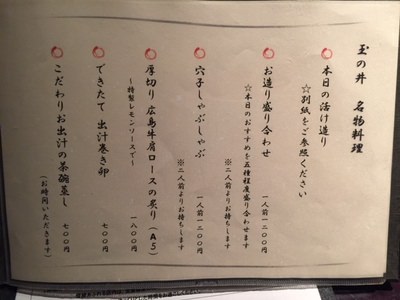 玉の井　名物料理
本日の活け造り
☆別紙をご参照ください
お造り盛り合わせ　一人前一二〇〇円
☆本日のおすすめを五種程度盛り合わせます
※二人前よりお持ちします
穴子しゃぶしゃぶ　一人前一二〇〇円
※二人前よりお持ちします
厚切り 広島牛肩ロースの炙り（A5）
～特製レモンソースで～　一八〇〇円
できたて 出汁巻き卵　七〇〇円
こだわりお出汁の茶碗蒸し　七〇〇円
（お時間いただきます）